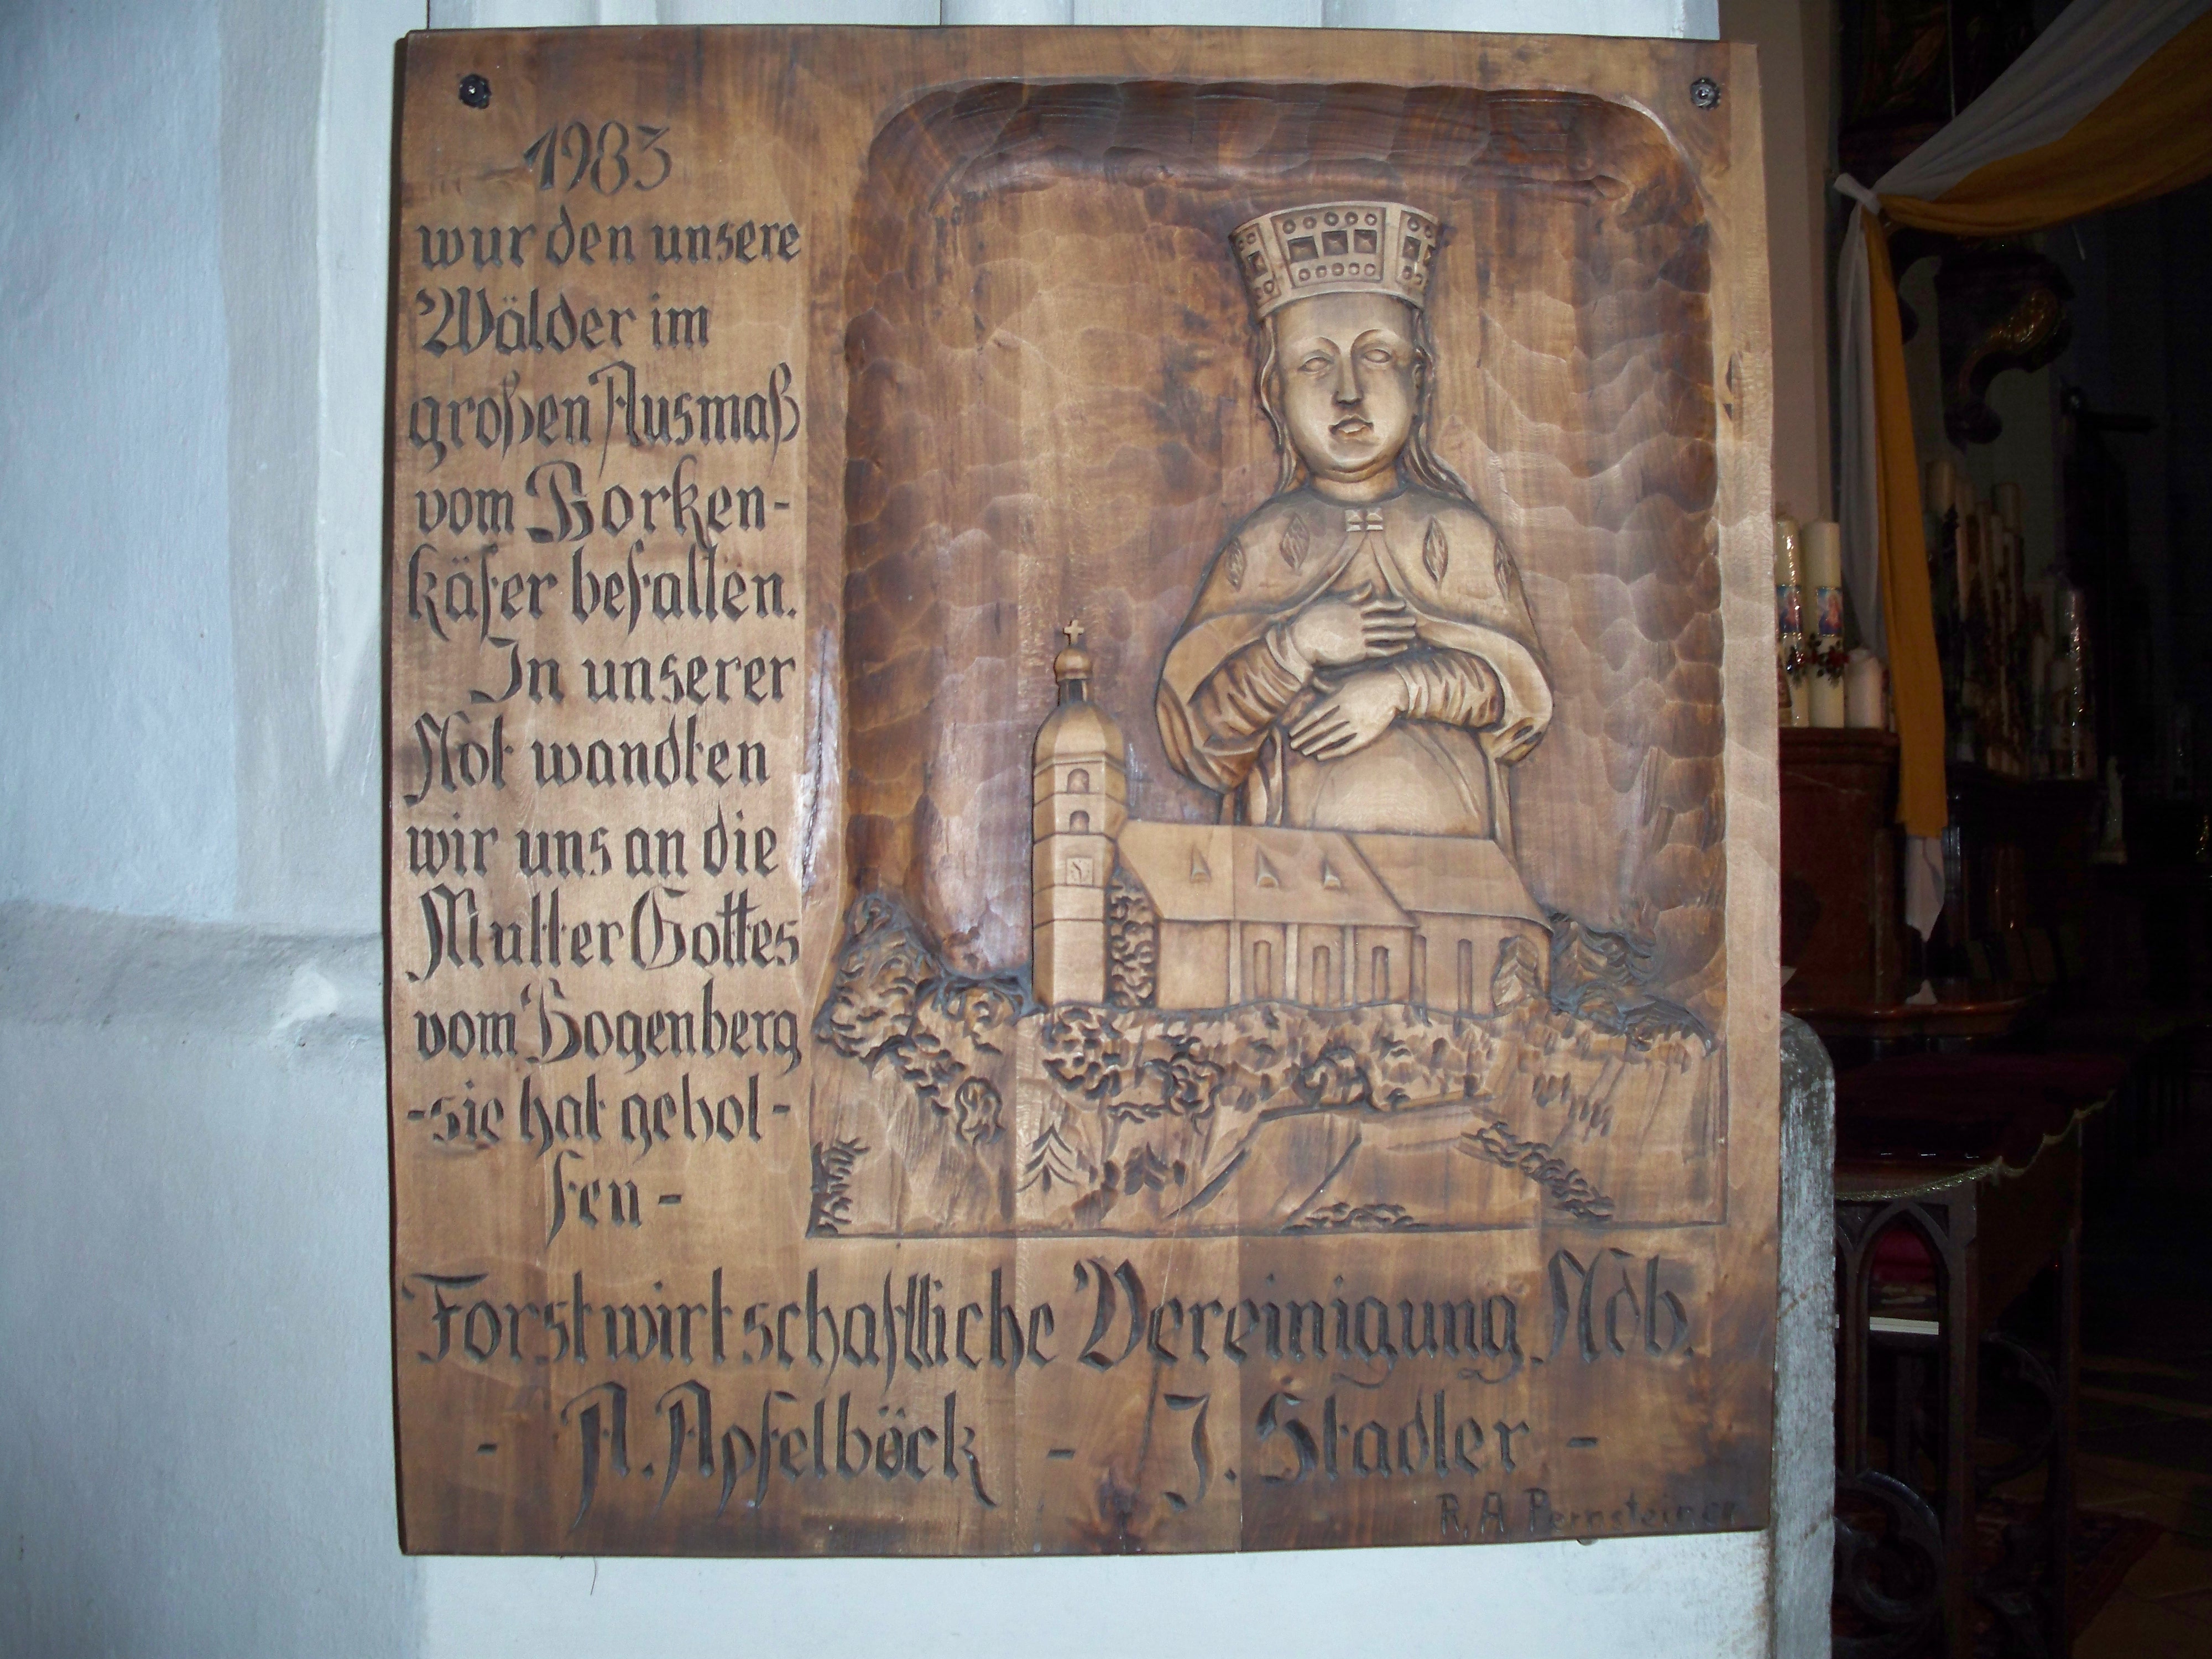 1983
wurden unsere
Wälder im
großen Ausmaß
vom Borken-
käfer befallen.
In unserer
Not wandten
wir uns an die
Mutter Gottes
vom Bogenberg
- sie hat gehol-
fen -
Forstwirtschaftliche Vereinigung Ndb.
- A. Apfelböck - J. Stadler -
R. A Pernsteiner